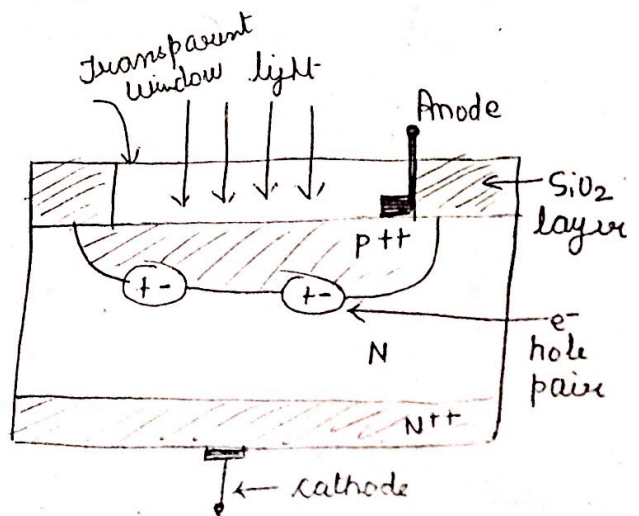 Transparent
window
light
Anode
SiO₂
layer
P++
+ -
+ -
e⁻
hole
pair
N
N++
cathode